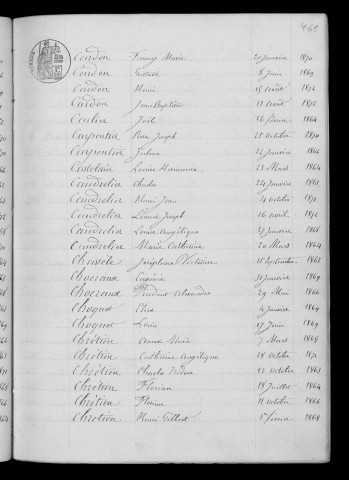 461
Cardon Fanny Marie 20 Janvier 1870
Cardon Gustave 8 Juin 1869
Cardon Henri 15 août 1872
Cardon Jean Baptiste 11 août 1872
Joël 26 février 1864
Carpentier Joseph 25 Octobre 1870
Carpentier Julien 22 Janvier 1866
Louise 23 Mars 1864
Caudrelier Charles 24 Janvier 1863
Caudrelier Henri Jean 4 octobre 1871
Caudrelier Léonie Joseph 16 avril 1872
Caudrelier Louise Angélique 27 Janvier 1868
Caudrelier Marie Catherine 20 Mars 1864
Joséphine Victoire 15 Septembre 1863
Choeraux Eugénie 30 Janvier 1869
Choeraux Prudent Alexandre 29 Mai 1866
Choquet Elisa 4 Janvier 1864
Choquet Louis 17 Juin 1869
Chrétien Marie 7 Mars 1868
Chrétien Catherine Angélique 28 Octobre 1871
Chrétien Charles Isidore 22 Octobre 1863
Chrétien Florian 18 Juillet 1864
Chrétien Florian 11 octobre 1866
Chrétien Henri Gilbert 5 février 1868